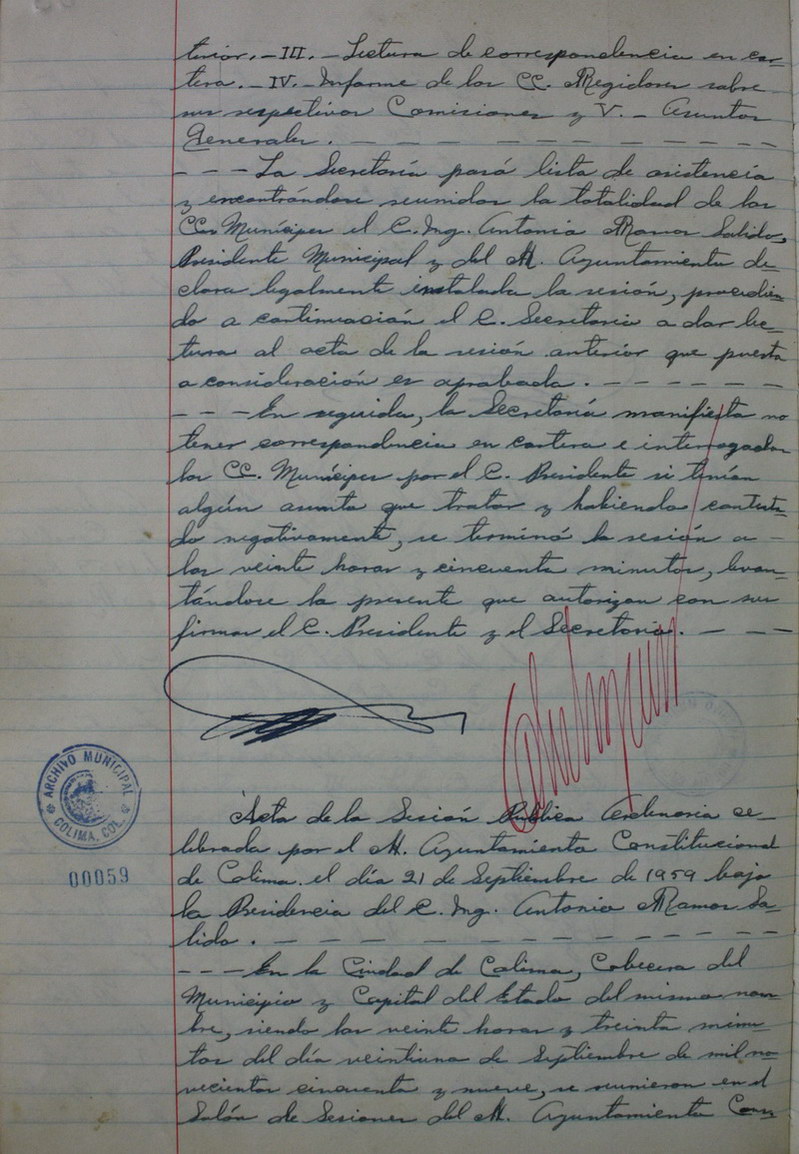 terior. - III. - Lectura de correspondencia en car-
tera. - IV. - Informe de los CC. Regidores sobre
sus respectivas Comisiones y V. - Asuntos
Generales. - - - - - - - - - -
- - - La Secretaría pasó lista de asistencia
y encontrándose reunidos la totalidad de los
CC. Munícipes el C. Ing. Antonio Ramos Salido,
Presidente Municipal y del H. Ayuntamiento de-
clara legalmente instalada la sesión, procedien
do a continuación el C. Secretario a dar lec-
tura al acta de la sesión anterior que puesta
a consideración es aprobada. - - - - - -
- - - En seguida, la Secretaría manifiesta no
tener correspondencia en cartera e interrogados
los CC. Munícipes por el C. Presidente si tenían
algún asunto que tratar y habiendo contesta-
do negativamente, se terminó la sesión a -
las veinte horas y cincuenta minutos, levan-
tándose la presente que autorizan con sus
firmas el C. Presidente y el Secretario. - - -
ARCHIVO MUNICIPAL
COLIMA, COL.
00059
Acta de la Sesión Pública Ordinaria ce-
lebrada por el H. Ayuntamiento Constitucional
de Colima. el día 21 de Septiembre de 1959 bajo
la Presidencia del C. Ing. Antonio Ramos Sa-
lido. - - - - - - - - - - - -
- - - En la Ciudad de Colima, Cabecera del
Municipio y Capital del Estado del mismo nom
bre, siendo las veinte horas y treinta minu-
tos del día veintiuno de Septiembre de mil no
vecientos cincuenta y nueve, se reunieron en el
Salón de Sesiones del H. Ayuntamiento Cons